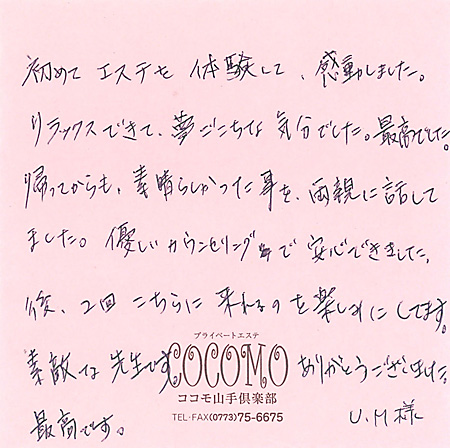 初めて エステを 体験して、感動しました。
リラックスできて、夢ごこちな 気分でした。最高でした。
帰ってからも、素晴らしかった事を、両親に話して
ました。優しいカウンセリングで 安心できました。
後、2回 こちらに 来れるのを楽しみにしてます。
プライベートエステ
素敵な 先生です COCOMO ありがとうございました。
ココモ山手倶楽部
TEL・FAX(0773)75-6675
最高です。 U.M様